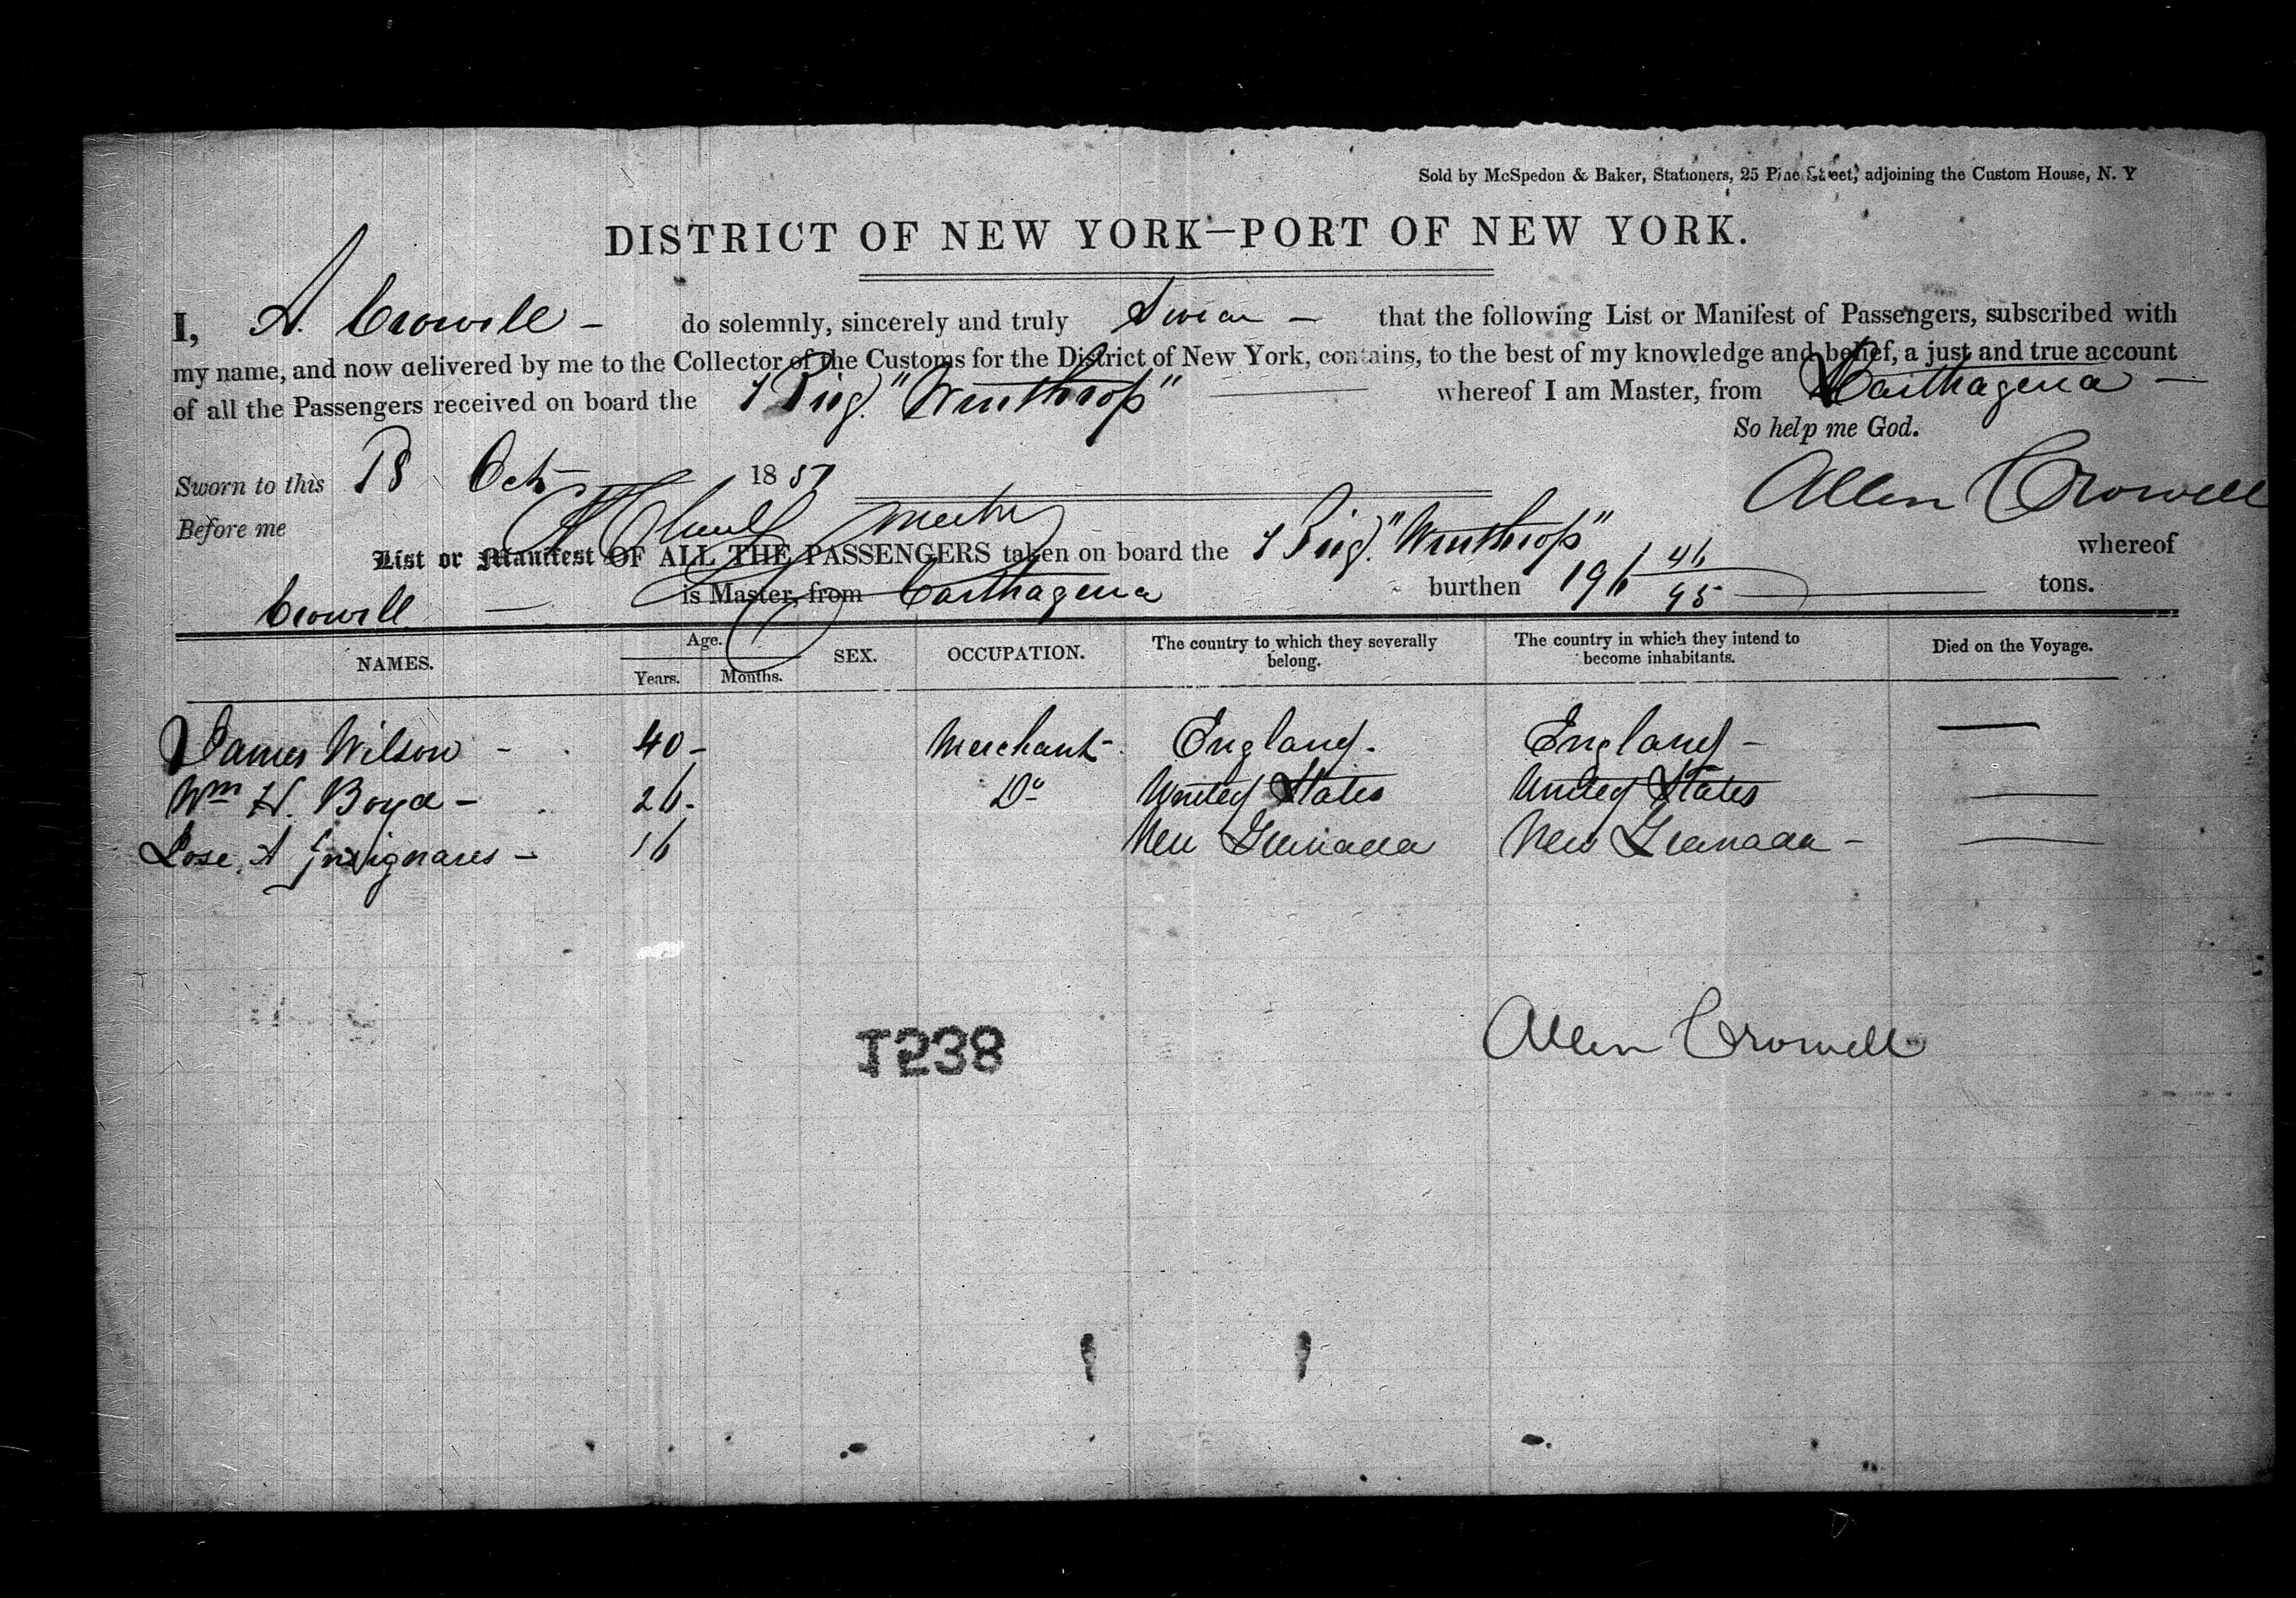 Sold by McSpedon & Baker, Stationers, 25 Pine Street, adjoining the Custom House, N. Y
DISTRICT OF NEW YORK—PORT OF NEW YORK.
I, A. Crowell – do solemnly, sincerely and truly Swear – that the following List or Manifest of Passengers, subscribed with
my name, and now delivered by me to the Collector of the Customs for the District of New York, contains, to the best of my knowledge and belief, a just and true account
of all the Passengers received on board the Brig. "Winthrop" whereof I am Master, from Carthagena –
So help me God.
Sworn to this 18 Oct 1851
Allen Crowell
Before me
List or Manifest OF ALL THE PASSENGERS taken on board the Brig. "Winthrop" whereof
Crowell – is Master, from Carthagena burthen 196 46/95 tons.
NAMES. Age. Years. Months. SEX. OCCUPATION. The country to which they severally belong. The country in which they intend to become inhabitants. Died on the Voyage.
James Wilson - 40 - Merchant - England. England - —
Wm H. Boyd - 26 - Do United States United States —
Jose A Insignares - 16 New Grenada New Grenada - —
Allen Crowell
1538